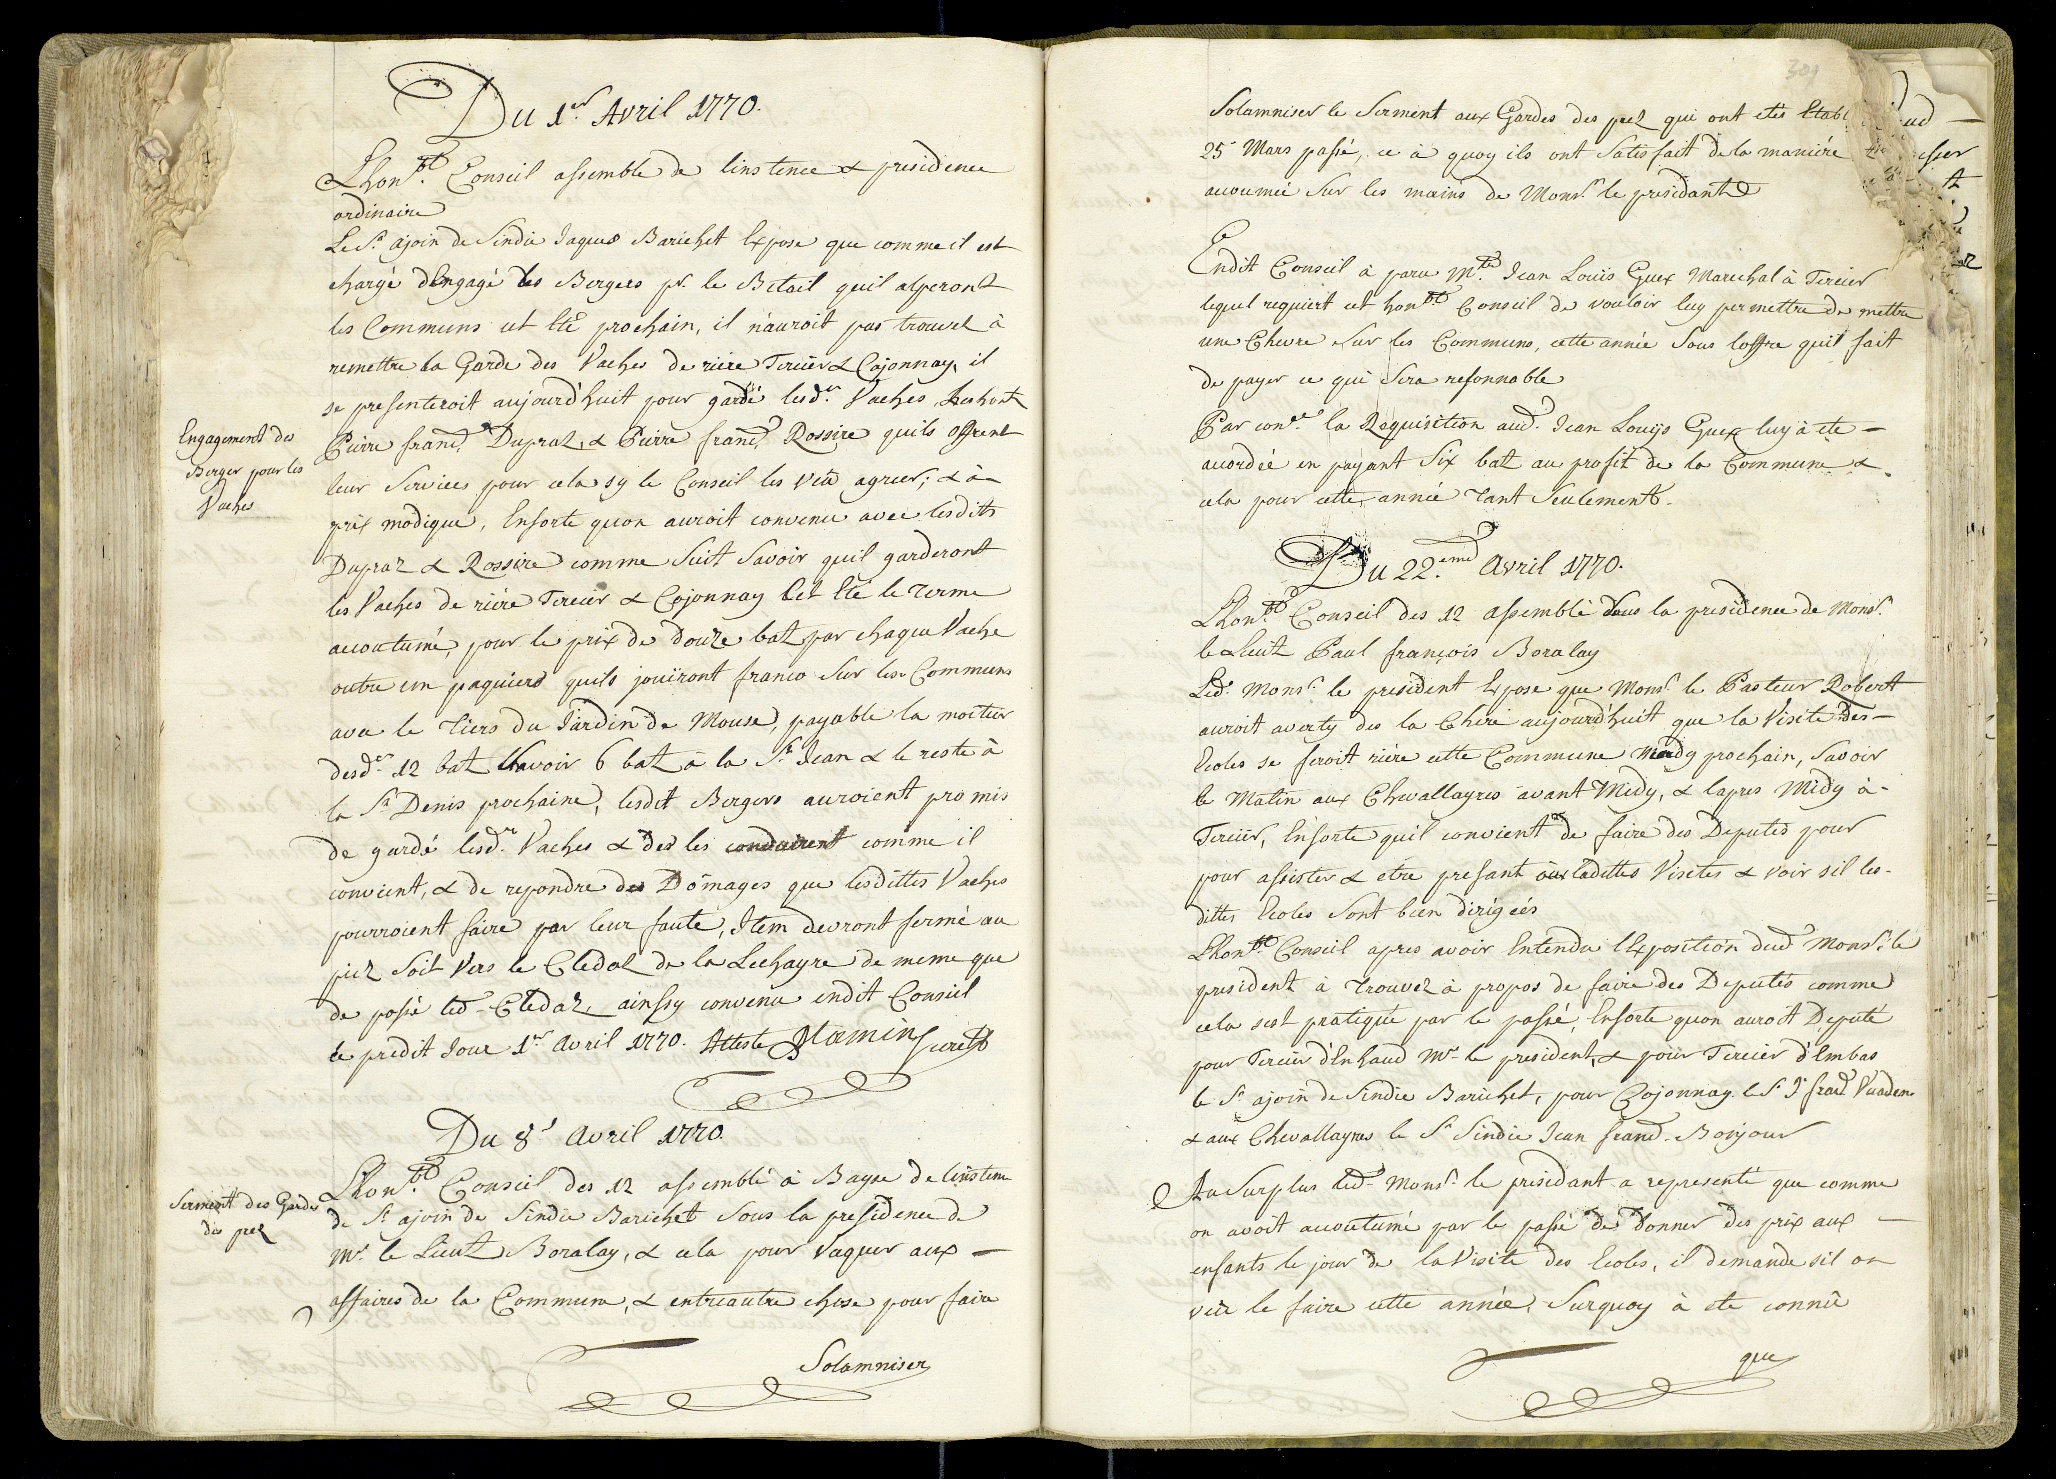 Du 1.er Avril 1770.
Lhon.ble Conseil assemble de linstence & presidence
ordinaire
Le S.r ajoin de Sindic Jaques Barichet Expose que comme il est
chargé d'Engagé des Bergers pr. le Betail quil alperont
les Communs cet Eté prochain, il n'auroit pas trouvez à
remettre la Garde des Vaches de riére Tercier & Cojonnay, il
se presenteroit aujourd'huit pour gardé lesd.es Vaches,
Engagement des
Berger pour les
Vaches
Pierre franç.s Dupraz, & Pierre franç.s Rossire quils offrent
leur Services pour cela sy le Conseil les veu agréer; & à
prix modique, Ensorte quon auroit convenu avec lesdits
Dupraz & Rossire comme Suit Savoir quil garderont
les Vaches de riére Tercier & Cojonnay Cet Eté le Terme
accoutumé, pour le prix de Douze batz par chaque Vache
outre un paquiers quils jouiront franco Sur les Communs
avec le Tiers du Jardin de Mouse, payable la moitier
desd.es 12 batz Savoir 6 batz à la S.t Jean & le reste à
la S.t Denis prochaine, lesdit Bergers auroient promis
de gardé lesd.es Vaches & des les conduirent comme il
convient, & de repondre des Dômages que lesdittes Vaches
pourroient faire par leur faute, Item devront fermé au
piez Soit Vers le Cledal de la Lechayre de meme que
de possé led. Cledaz, ainssy convenu endit Conseil
le predit Jour 1.er Avril 1770. Atteste Mamin Secret.
Du 8.e Avril 1770.
Lhon.ble Conseil des 12 assemblé à Bayse de linstence
Serment des Gardes
des prez
de S.r ajoin de Sindic Barichet Sous la presidence de
Mr. le Lieut. Boralay, & cela pour Vaquer aux
affaires de la Commune, & entreautre chose pour faire
Solamniser
301
Solamniser le Serment aux Gardes des prez qui ont etés Etabl
25.e Mars passé, ce à quoy ils ont Satisfait de la maniére
accoumée Sur les mains de Mons.r le presidant
Endit Conseil à paru M.tre Jean Louis Guex Marechal à Tercier
lequel requiert cet hon.ble Conseil de vouloir luy permettre de mettre
une Chevre Sur les Communs, cette année Sous l'offre quil fait
de payer ce qui Sera resonnable
Par con.ce la Requisition aud. Jean Louys Guex luy à ete
accordée en payant Six batz au profit de la Commune &
cela pour cette année Tant Seulement.
Du 22.eme Avril 1770.
Lhon.ble Conseil des 12 assemblé Sous la presidence de Mons.r
le Lieut Paul françois Boralay
Led. Mons.r le president Expose que Mons.r le Pasteur Robert
auroit averty des la Chire aujourd'huit que la Visite des
Ecoles se feroit riére cette Commune prochain, Savoir
le Matin aux Chevallayres avant Midy, & lapres Midy à
Tercier, Ensorte quil convient de faire des Deputés pour
assister & etre present aux ladittes Visites & voir sil les
dittes Ecoles Sont bien dirigées
Lhon.ble Conseil apres avoir Entendu l'Exposition dud. Mons.r le
president à Trouvez à propos de faire des Deputés comme
cela sest pratiqué par le passé, Ensorte quon auroit Deputé
pour Tercier d'Enhaud Mr. le president, & pour Tercier d'Embas
le S.r ajoin de Sindic Barichet, pour Cojonnay le S.r J. franç. Vuaden
& aux Chevallayres le S.r Sindic Jean franç. Bonjour
Au Surplus led. Mons.r le presidant a representé que comme
on avoit accoutumé par le passé de Donner des prix aux
enfants le jour de la Visite des Ecoles, il demande sil on
veut le faire cette année, Surquoy à ete connû
que